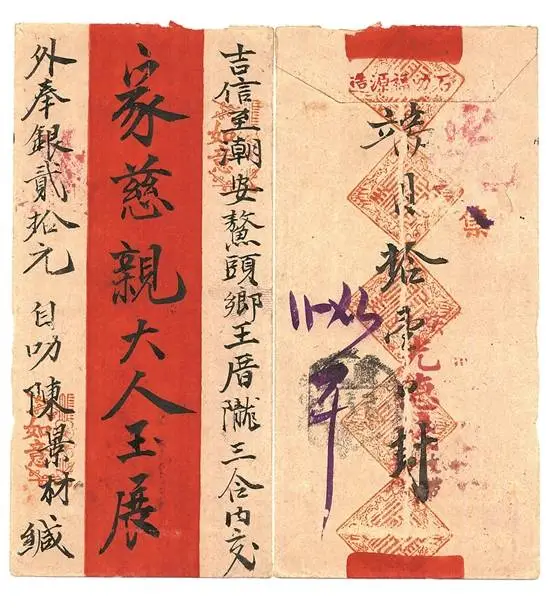 吉信至潮安鰲頭鄉王厝隴三合內交
家慈親大人玉展
外奉銀貳拾元 自叻陳景材緘
石叻福源造
月拾日封
光德
如意
如意